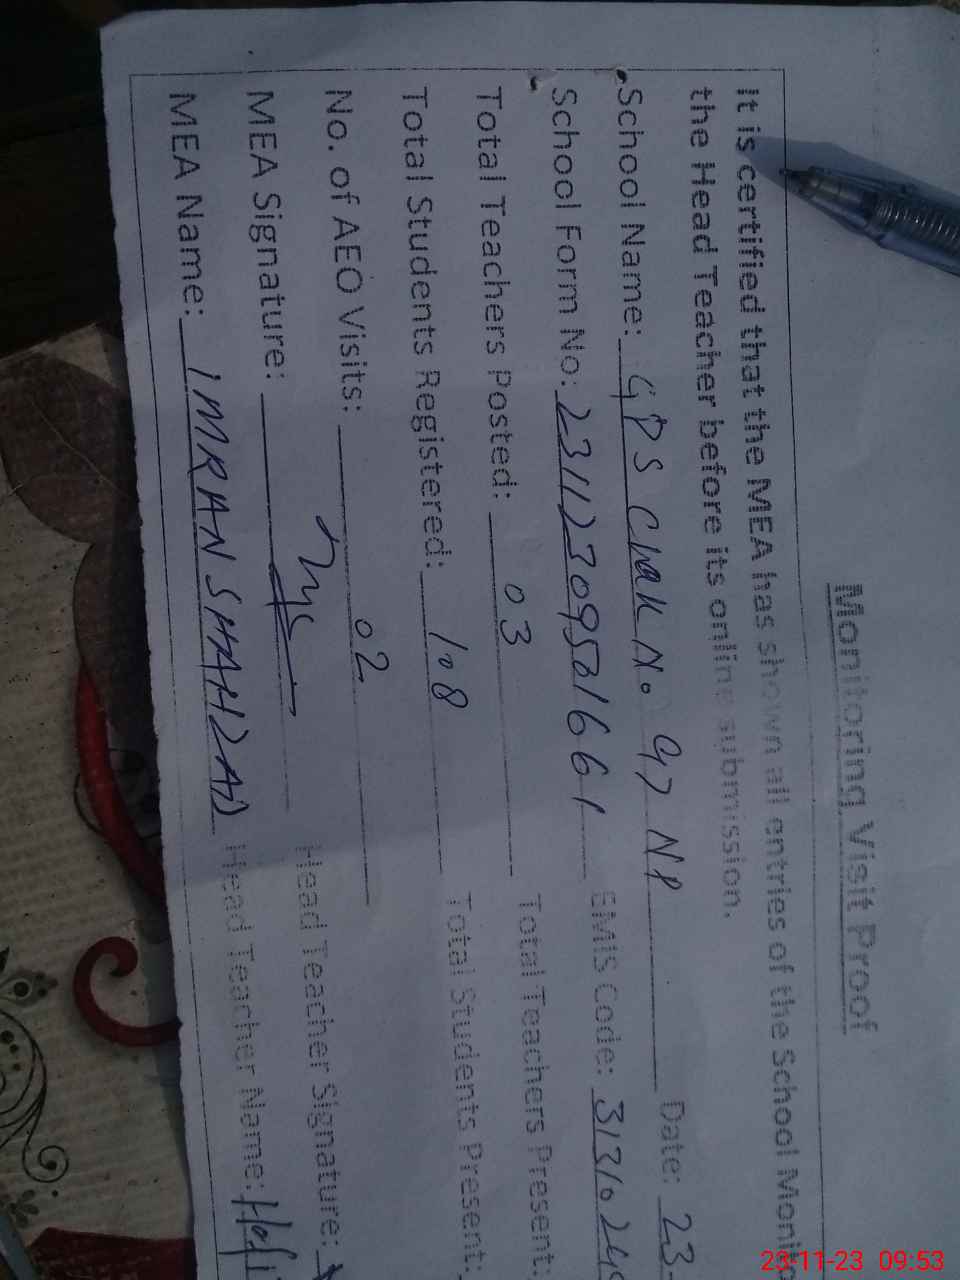 Monitoring Visit Proof
It is certified that the MEA has shown all entries of the School Monito
the Head Teacher before its online submission.
School Name: GPS Chak No 97 NP Date: 23-
School Form No: EMIS Code: 3131024
Total Teachers Posted: 03 Total Teachers Present:
Total Students Registered: 108 Total Students Present:
No. of AEO Visits: 02
MEA Signature: Head Teacher Signature:
MEA Name: IMRAN SHAHZAD Head Teacher Name:
23-11-23 09:53